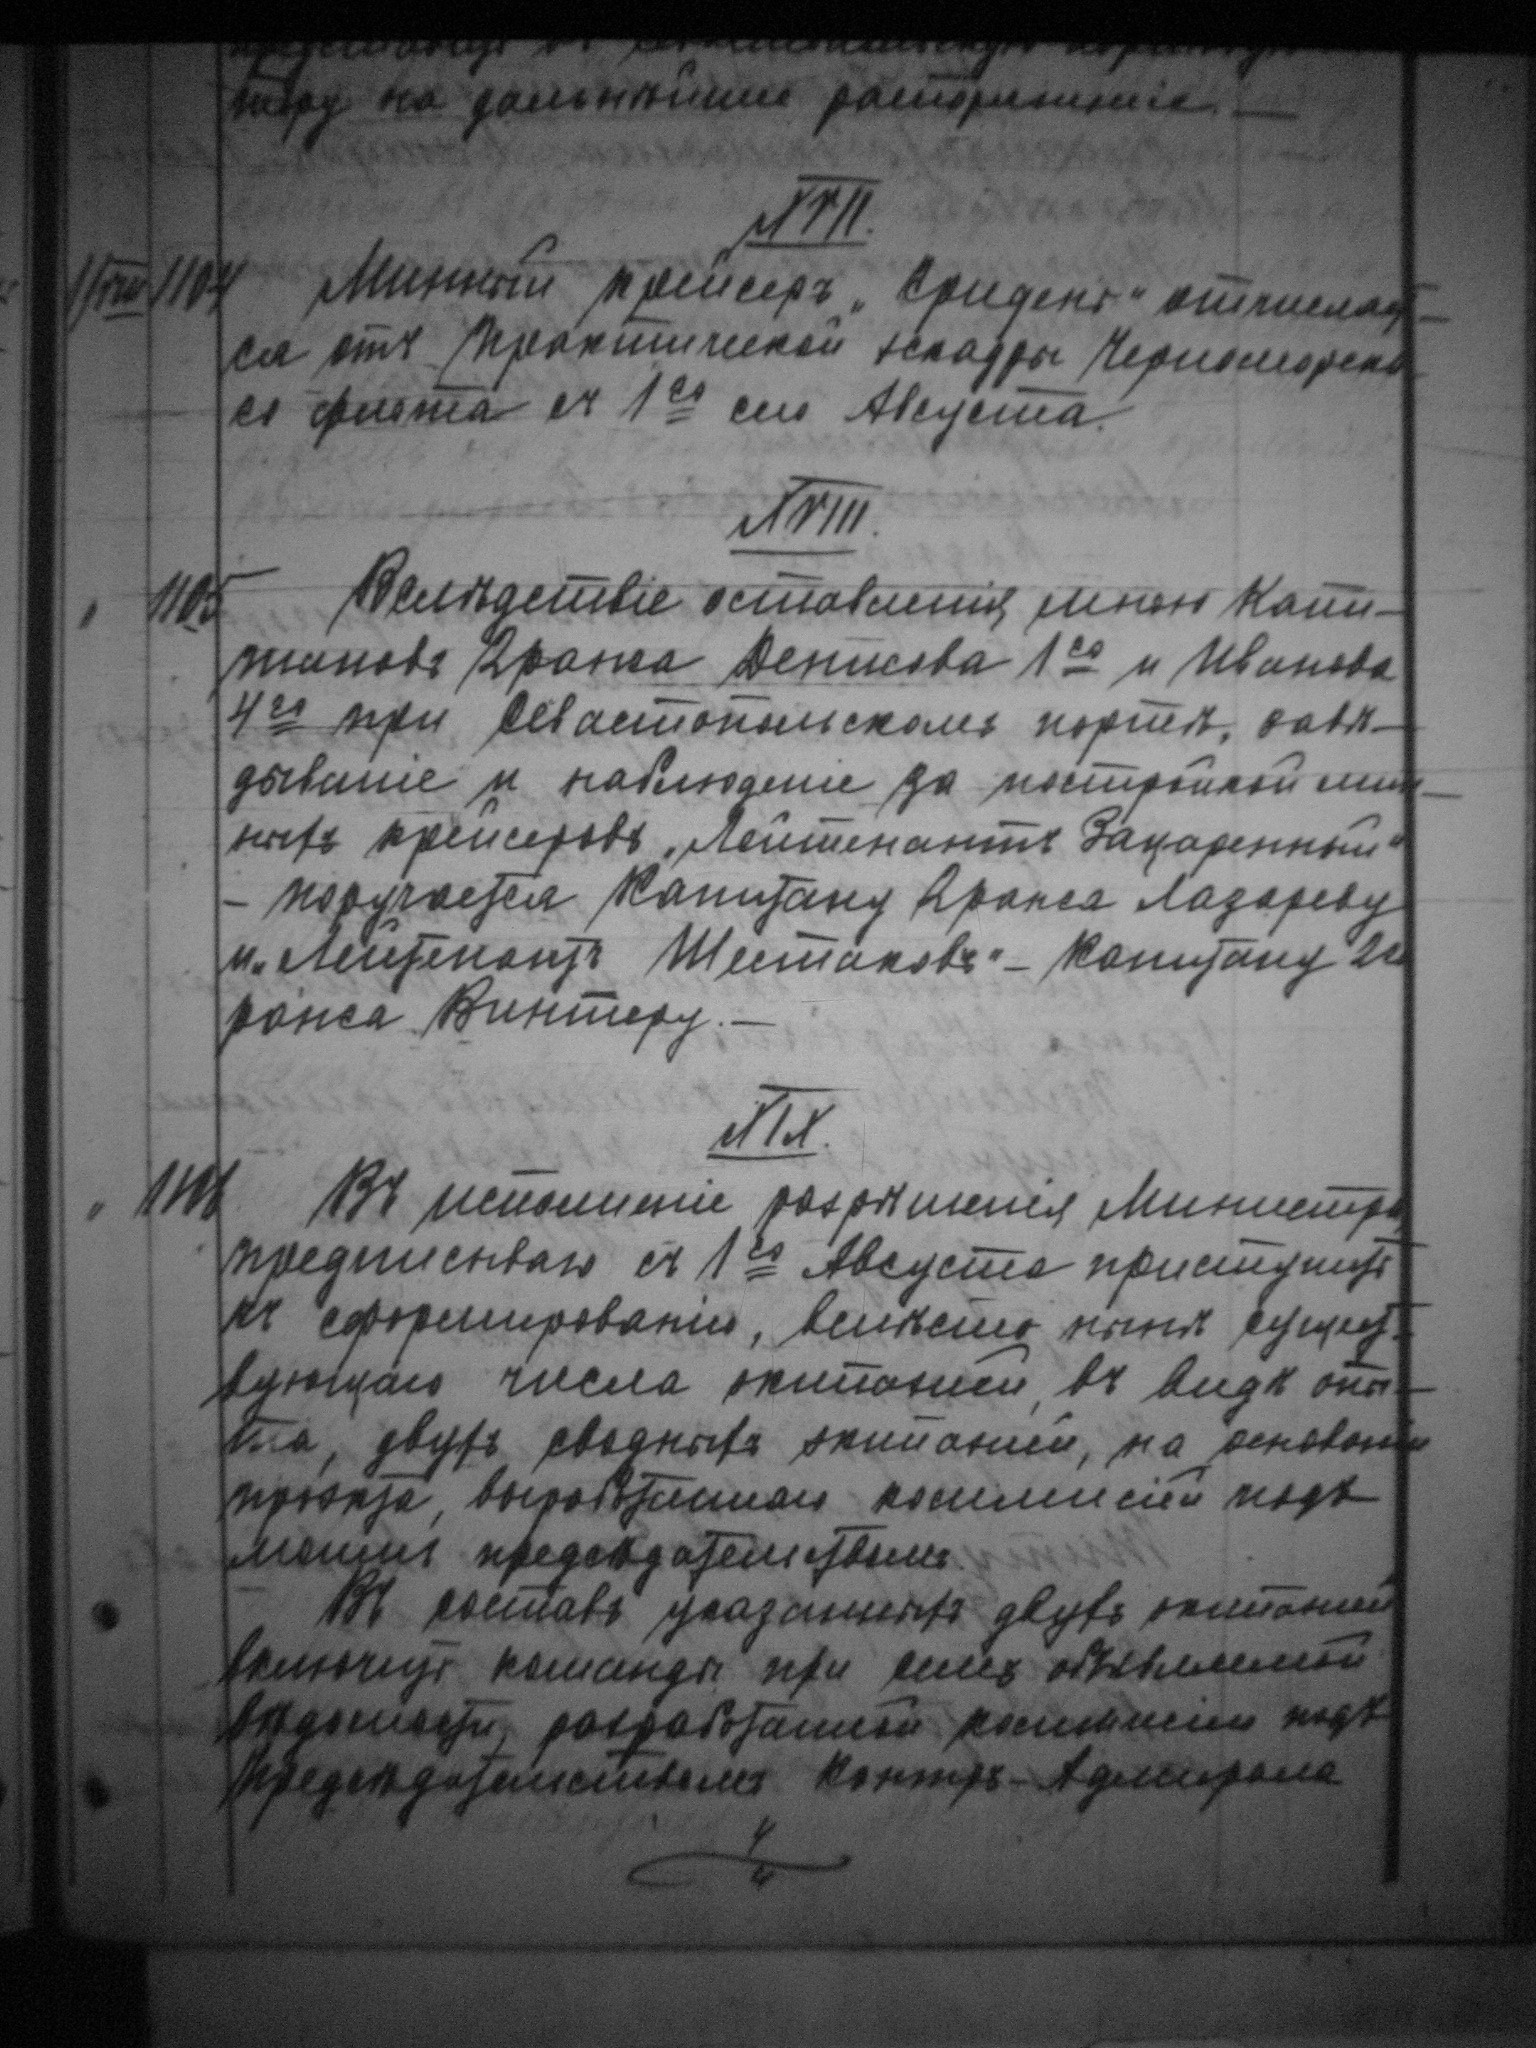 тору на дальнѣйшее распоряженіе. —
XVII.
1/VIII 1104 Минный крейсеръ „Гриденъ" отчислает-
ся отъ Практической эскадры Черноморска-
го флота съ 1го сего Августа.
XVIII.
" 1105 Вслѣдствіе оставленія мною Капи-
тановъ 2 ранга Денисова 1го и Иванова
4го при Севастопольскомъ портѣ, завѣ-
дываніе и наблюденіе за постройкой мин-
ныхъ крейсеровъ „Лейтенантъ Зацаренный"
– поручается Капитану 2 ранга Лазареву
и „Лейтенантъ Шестаковъ" – Капитану 2го
ранга Винтеру. —
XIX.
" 1106 Въ исполненіе разрѣшенія Министра
предписываю съ 1го Августа приступить
къ сформированію, вмѣсто нынѣ сущест-
вующаго числа экипажей, въ видѣ опы-
та, двухъ сводныхъ экипажей, на основаніи
проэкта, выработаннаго коммисіей подъ
моимъ предсѣдательствомъ.
Въ составъ указанныхъ двухъ экипажей
включить команды при семъ объявляемой
вѣдомости, разработанной коммисіею подъ
предсѣдательствомъ Контръ-Адмирала